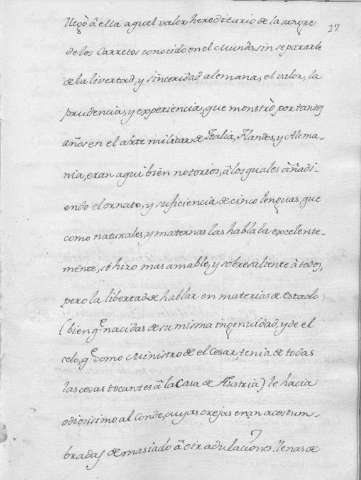 27
llegó á esta aquel valor hereditario de la sangre
de los Carretos conocido en el Mundo, sin separarle
de la livertad, y sinceridad alemana, el valor, la
prudencia, y experiencia, que monstró por tantos
años en el arte militar de Italia, Flandes, y Alema-
nia, eran aqui bien notorios, á los quales añadi-
endo el ornato, y suficiencia de cinco lenguas, que
como naturales, y maternas las hablaba excelente-
mente, se hizo mas amable, y sobresaliente á todos,
pero la libertad de hablar en materias de estado
(bien q. nacidas de su misma ingenuidad, y de el
celo, q. como Ministro de el Cesar tenia de todas
las cosas tocantes á la Casa de Austria) le hacia
odiosisimo al Conde, cuyas orejas eran acostum-
bradas demasiado á oir adulaciones, llenas de